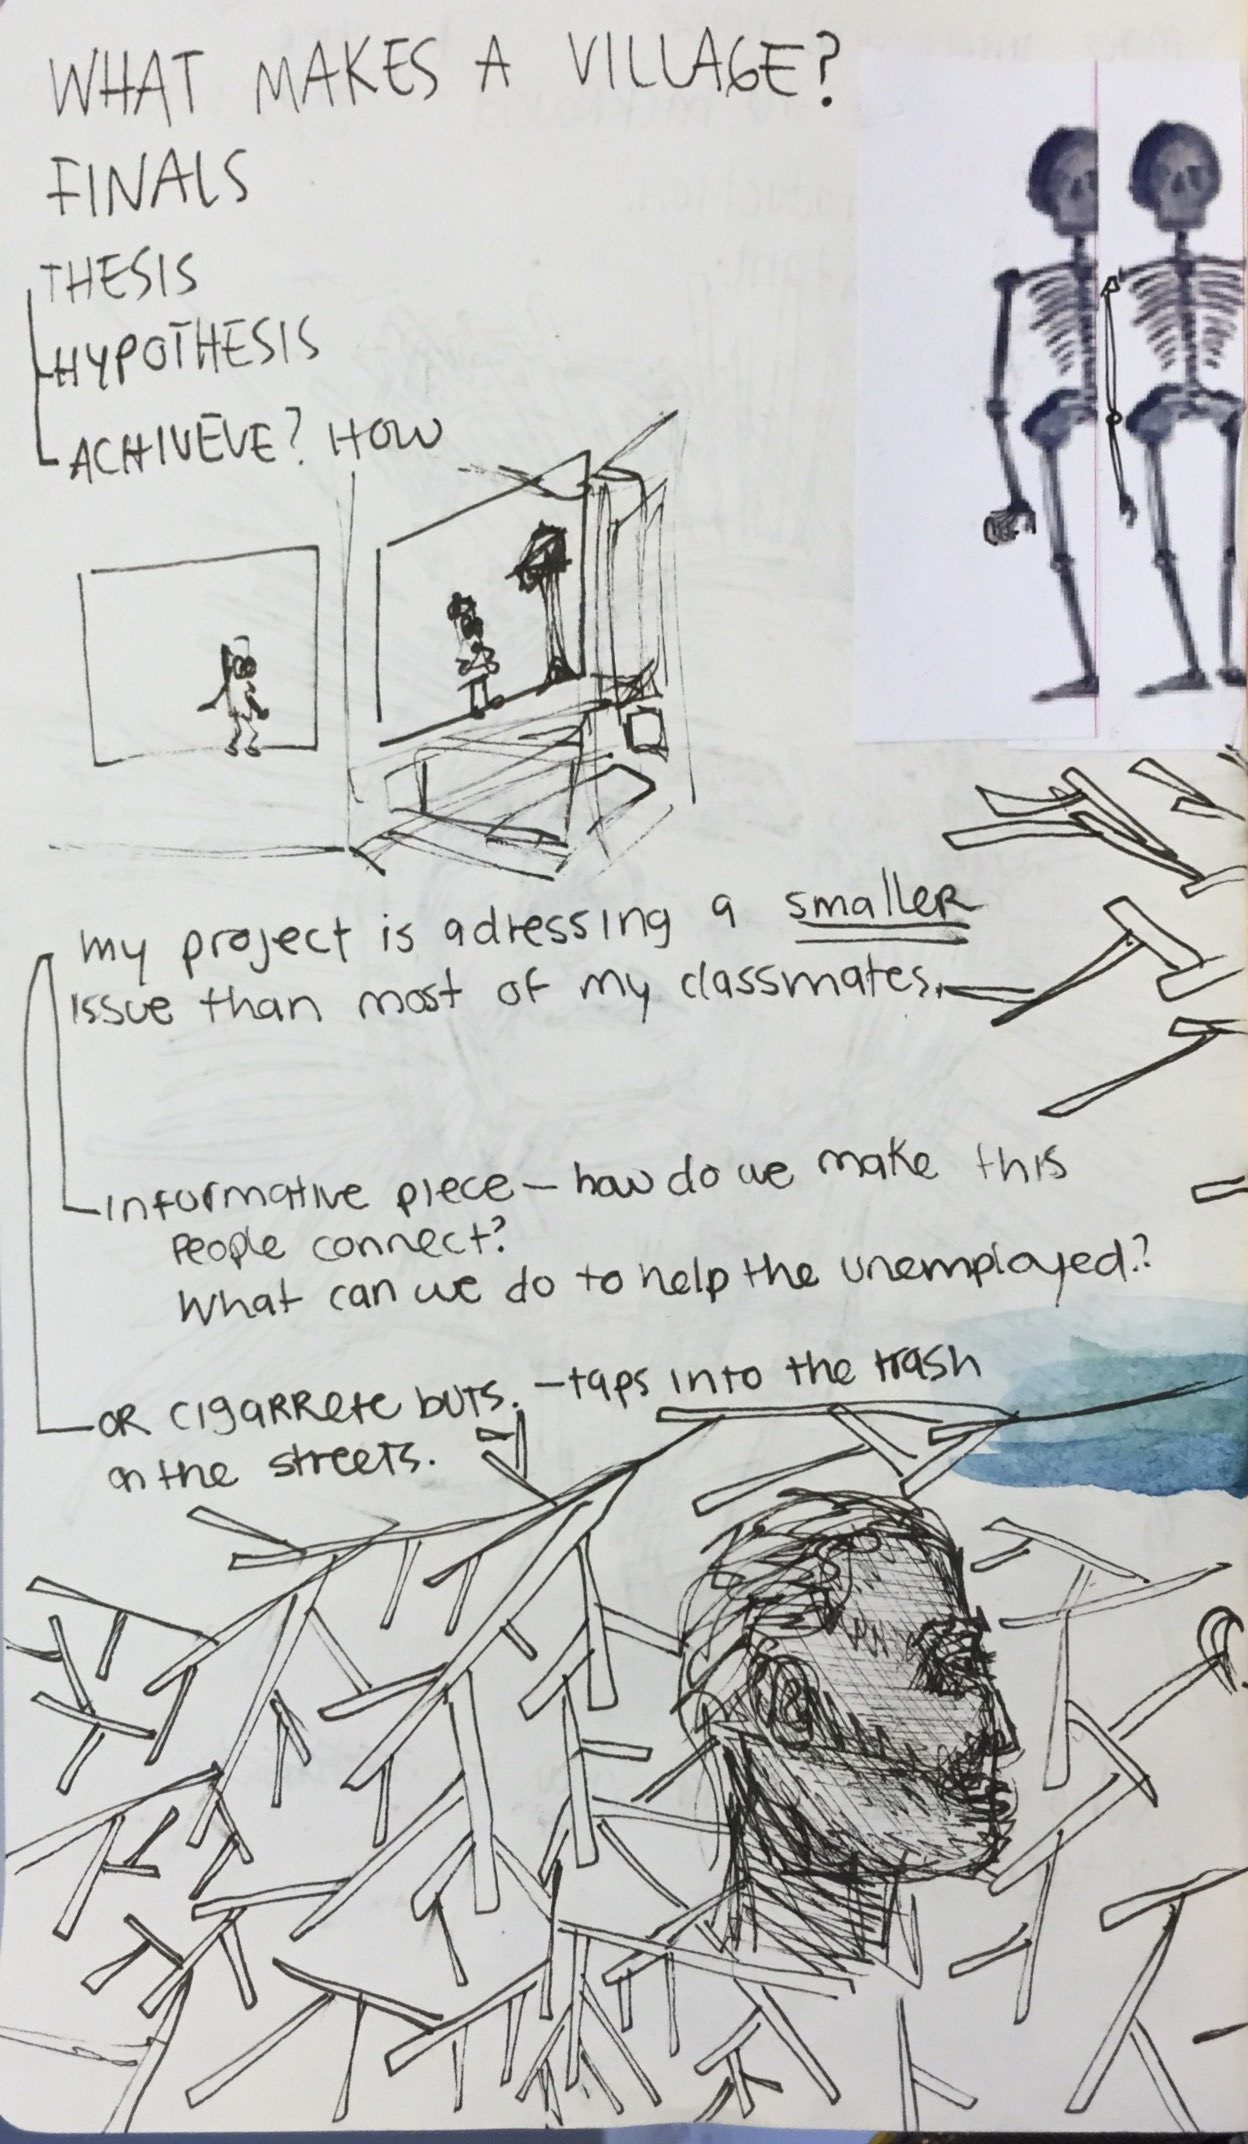 WHAT MAKES A VILLAGE?
FINALS
THESIS
HYPOTHESIS
ACHIVEVE? HOW
my project is adressing a smaller
issue than most of my classmates.
Informative piece – how do we make this
people connect?
What can we do to help the unemployed?
OR cigarrete buts. – taps into the trash
on the streets.